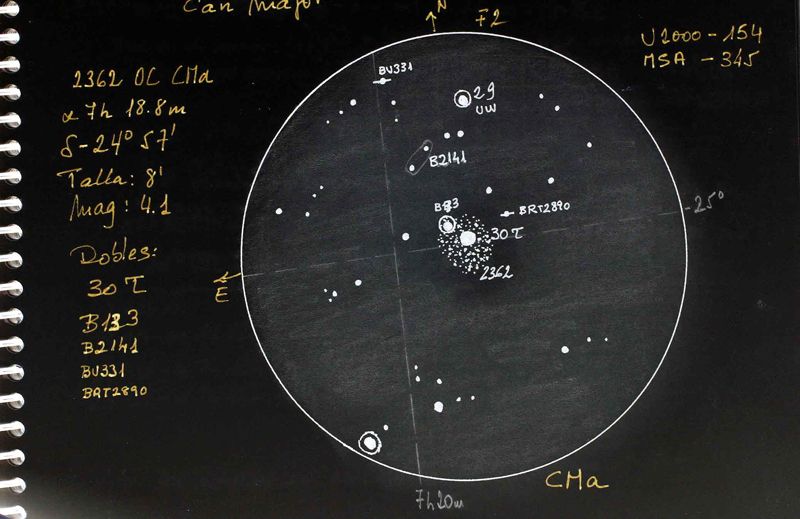 Can Major
N
F2
U2000 - 154
MSA - 345
2362 OC CMa
α 7h 18.8m
δ -24° 57'
Talla: 8'
Mag: 4.1
Dobles:
30 τ
B2141
BU331
BRT2890
BU331
29
UW
B2141
BRT2890
30 τ
2362
-25°
E
7h20m
CMa